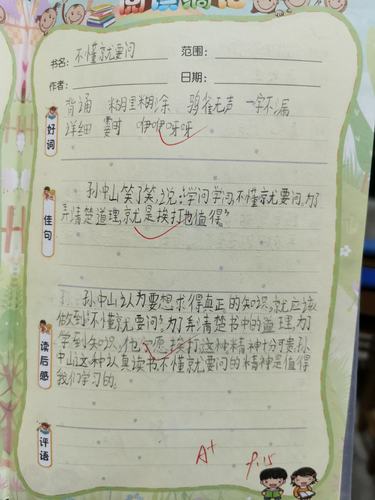 阅读摘记
书名：不懂就要问
范围：
作者：
日期：
好词
背诵 糊里糊涂 鸦雀无声 一字不漏
详细 霎时 咿咿呀呀
佳句
孙中山笑了笑，说：“学问学问，不懂就要问，为了
弄清楚道理，就是挨打也值得。”
读后感
孙中山认为要想求得真正的知识，就应该
做到“不懂就要问”，为了弄清楚书中的道理，为了
学到知识，他宁愿挨打，这种精神十分可贵。孙
中山这种认真读书不懂就要问的精神是值得
我们学习的。
评语
A+
9.15